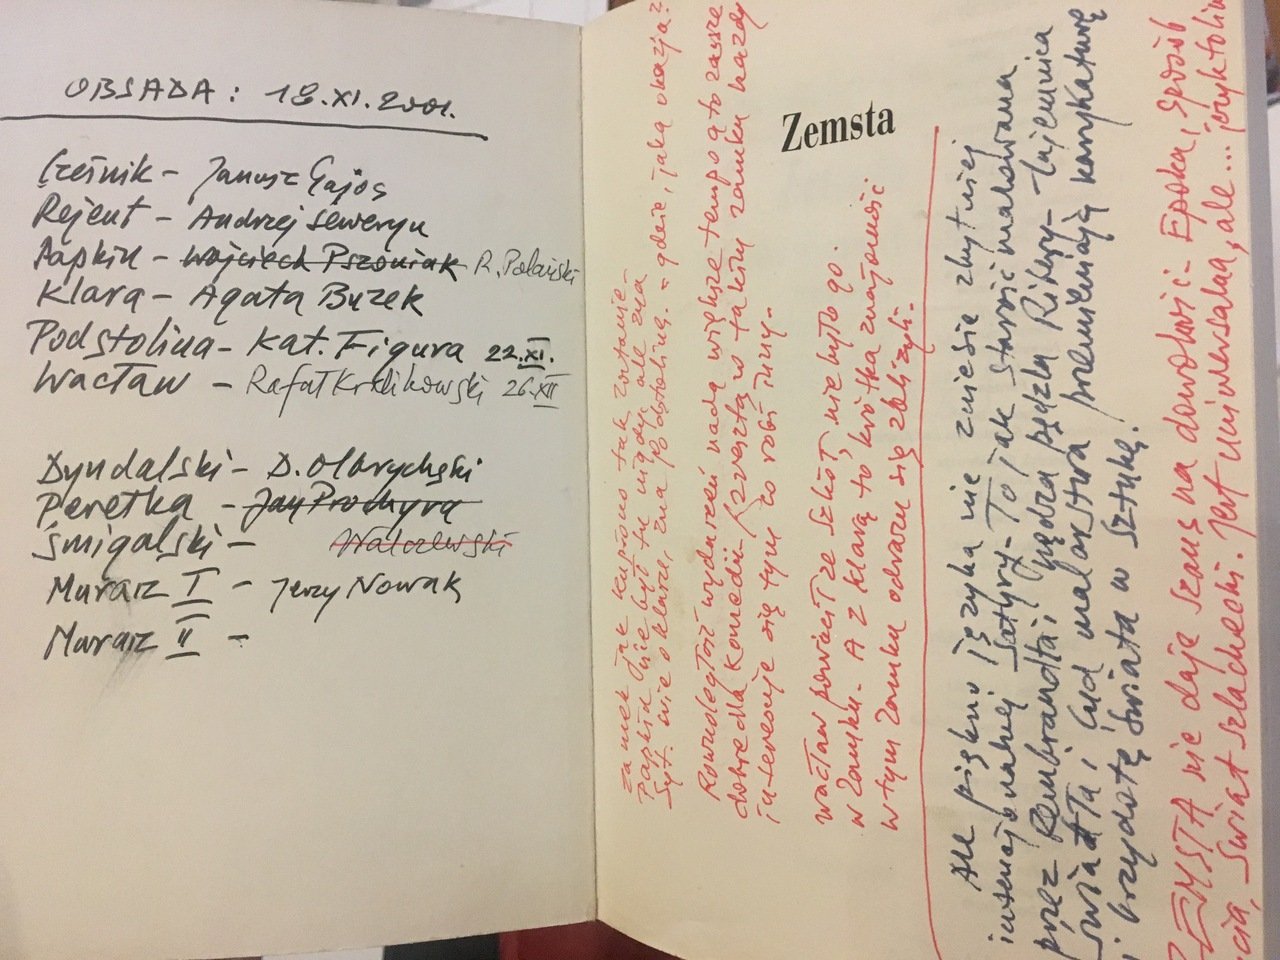 OBSADA: 18.XI.2001.
Cześnik - Janusz Gajos
Rejent - Andrzej Seweryn
Papkin - Wojciech Pszoniak R. Polański
Klara - Agata Buzek
Podstolina - Kat. Figura 22.XI.
Wacław - Rafał Królikowski 26.XII
Dyndalski - D. Olbrychski
Perełka - Jan Prochyra
Śmigalski - Walczewski
Murarz I - Jerzy Nowak
Murarz II -
Zemsta
zamek jak kupiono tak zostanie -
Papkin nie był tu nigdy ale zna
Syt. wie o Klarze, zna Podstolinę. - gdzie i jaka okazja?
Równoległość wydarzeń nada większe tempo a to zawsze
dobre dla komedii - zresztą w takim zamku każdy
interesuje się tym co robi inny.
Wacław powrócił ze szkół, nie było go
w zamku. A z Klarą to krótka znajomość
w tym zamku odrazu się zbliżyli.
Ale piękno języka nie zniesie zbytniej
intencjonalnej satyry. To jak starość malowana
przez Rembrandta i nędza pędzla Ribery - tajemnica
światła i cud malarstwa przemieniają karykaturę
i brzydotę świata w sztukę!
ZEMSTA nie daje szans na dowolność. Epoka, sposób
życia, świat szlachecki. Jest uniwersalna, ale...